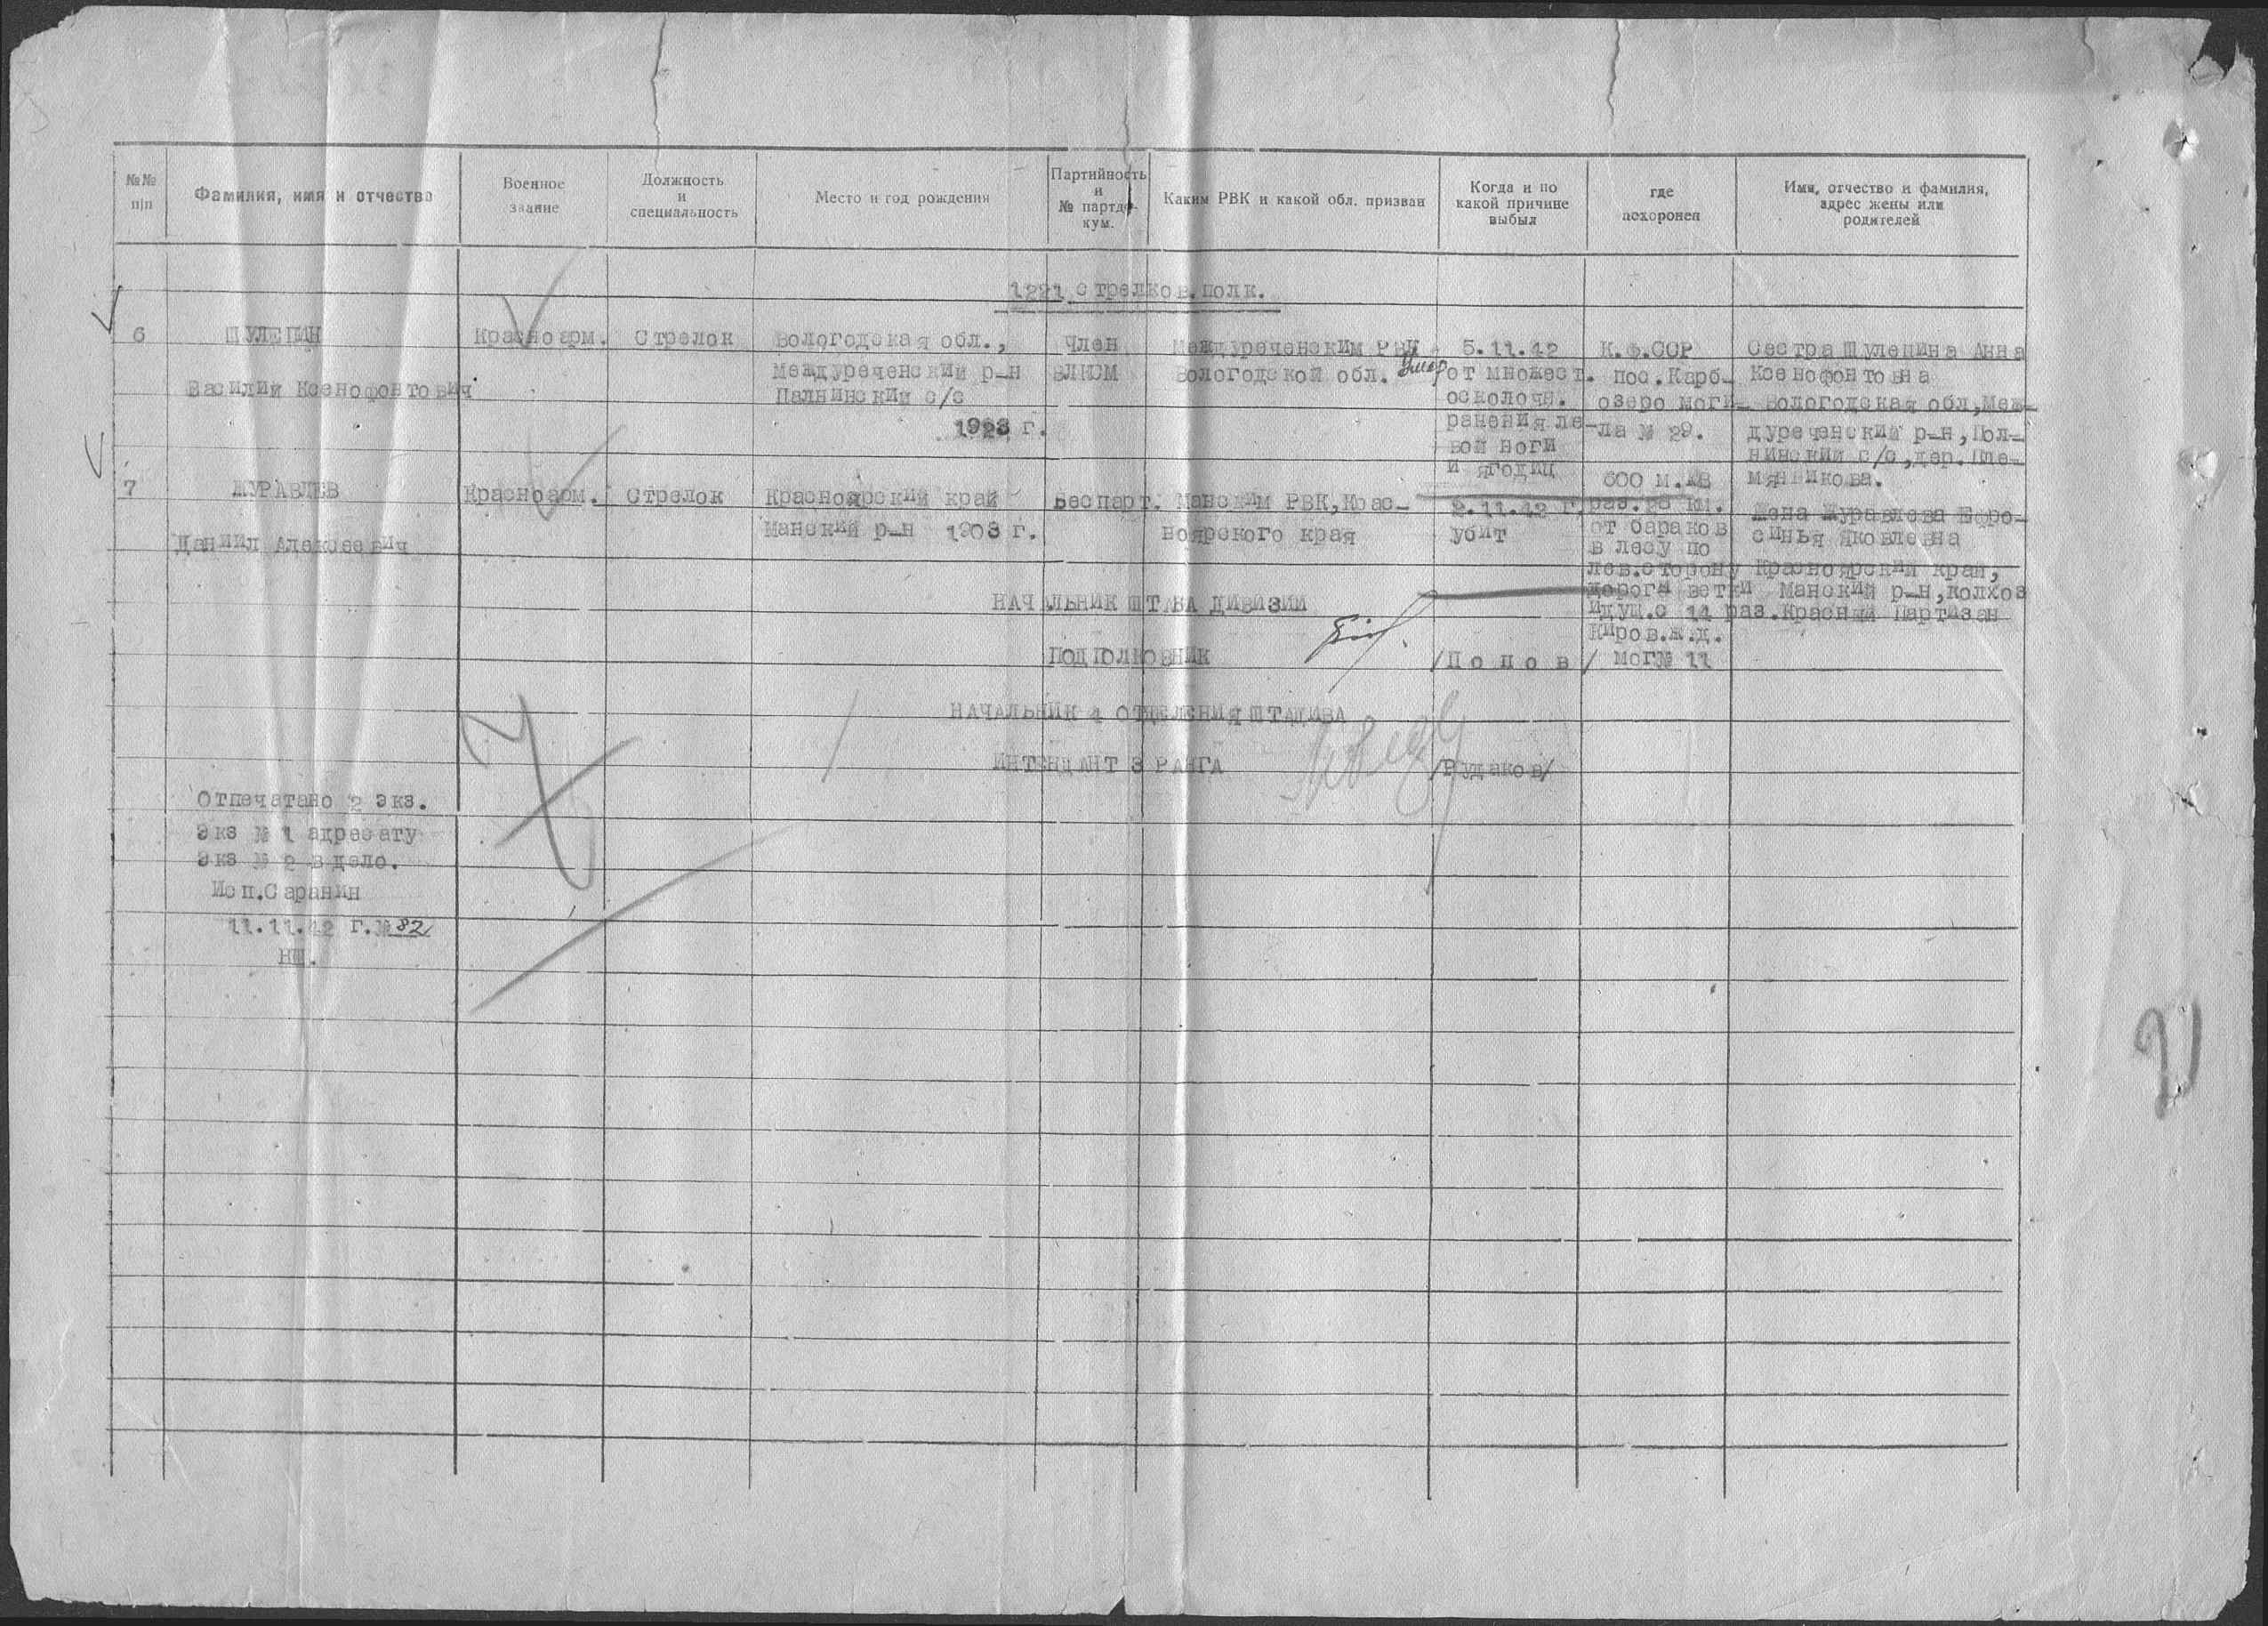 №№ п|п
Фамилия, имя и отчество
Военное звание
Должность и специальность
Место и год рождения
Партийность и № партдокум.
Каким РВК и какой обл. призван
Когда и по какой причине выбыл
где похоронен
Имя, отчество и фамилия, адрес жены или родителей
1221 стрелков.полк.
6
ШУЛЕПИН
Василий Ксенофонтович
Красноарм.
Стрелок
Вологодская обл.,
Междуреченский р-н
Палнинский с/с
1923 г.
Член
ВЛКСМ
Междуреченским РВК
Вологодской обл.
Умер
5.11.42
от множест.
осколочн.
ранения ле-
вой ноги
и ягодиц
К.Ф.ССР
пос.Карб-
озеро моги-
ла № 29.
Сестра Шулепина Анна
Ксенофонтовна
Вологодская обл,Меж-
дуреченский р-н,Пол-
нинский с/с,дер.Пле-
мянникова.
7
ЖУРАВЛЕВ
Даниил Алексеевич
Красноарм.
Стрелок
Красноярский край
Манский р-н 1903 г.
Беспарт.
Манским РВК,Крас-
ноярского края
2.11.42 г.
убит
600 м.ЮВ
раз.28 км.
от бараков
в лесу по
лев.сторону
дороги ветки
идущ.с 14 раз.
Киров.ж.д.
мог№ 11
Жена Журавлева Ефро-
синья Яковлевна
Красноярский край,
Манский р-н,колхоз
Красный Партизан
НАЧАЛЬНИК ШТАБА ДИВИЗИИ
ПОДПОЛКОВНИК
/П о п о в/
НАЧАЛЬНИК 4 ОТДЕЛЕНИЯ ШТАДИВА
ИНТЕНДАНТ 3 РАНГА
/Рудаков/
Отпечатано 2 экз.
Экз № 1 адресату
Экз № 2 в дело.
Исп.Саранин
11.11.42 г.№82
НШ.
21